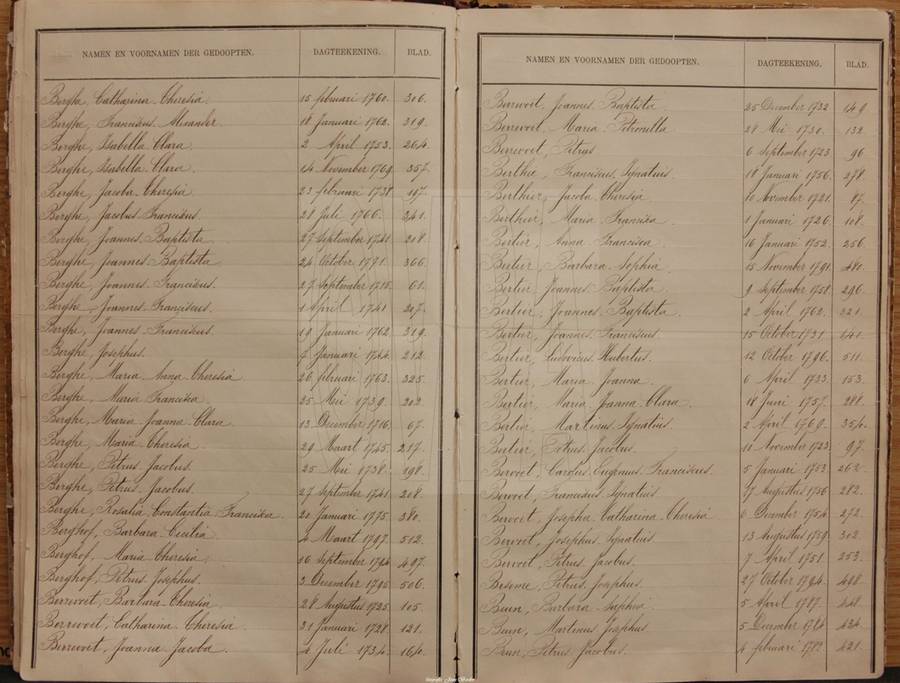 NAMEN EN VOORNAMEN DER GEDOOPTEN. DAGTEEKENING. BLAD.
Berghe, Catharina Theresia. 15 februari 1760. 306.
Berghe, Franciscus Alexander 18 Januari 1762. 319.
Berghe, Isabella Clara 2 April 1753. 264.
Berghe, Isabella Clara. 14 November 1769. 357.
Berghe, Jacoba Theresia 23 februari 1738. 197.
Berghe, Jacobus Franciscus. 28 Juli 1766. 341.
Berghe, Joannes Baptista 27 September 1741 208.
Berghe, Joannes Baptista 24 October 1771. 366.
Berghe, Joannes Franciscus. 27 September 1715. 61.
Berghe, Joannes Franciscus 1 April 1741 207.
Berghe, Joannes Franciscus. 19 Januari 1762 319.
Berghe, Josephus. 7 Januari 1742. 212.
Berghe, Maria Anna Theresia 26 februari 1763. 325.
Berghe, Maria Francisca 25 Mei 1739. 202.
Berghe, Maria Joanna Clara 13 December 1716. 67.
Berghe, Maria Theresia 29 Maart 1745. 217.
Berghe, Petrus Jacobus. 25 Mei 1738. 198.
Berghe, Petrus Jacobus. 27 September 1741. 208.
Berghe, Rosalia Constantia Francisca. 20 Januari 1775. 380.
Berghof, Barbara Cecilia 4 Maart 1797. 512.
Berghof, Maria Theresia 16 September 1794 497.
Berghof, Petrus Josephus. 3 December 1795 506.
Berrevoet, Barbara Theresia 28 Augustus 1725. 105.
Berrevoet, Catharina Theresia 31 Januari 1728. 121.
Berrevoet, Joanna Jacoba 4 Juli 1734. 164.
NAMEN EN VOORNAMEN DER GEDOOPTEN. DAGTEEKENING. BLAD.
Berrevoet, Joannes Baptista 25 December 1732 149
Berrevoet, Maria Petronilla 28 Mei 1730. 132.
Berrevoet, Petrus 6 September 1723 96
Berthe, Franciscus Ignatius. 18 Januari 1756. 278.
Berthier, Jacoba Theresia 10 November 1721. 87.
Berthier, Maria Francisca 1 Januari 1726. 108.
Bertier, Anna Francisca 16 Januari 1752. 256.
Bertier, Barbara Sophia 15 November 1791. 480.
Bertier, Joannes Baptista 9 September 1758. 296.
Bertier, Joannes Baptista 2 April 1762. 321.
Bertier, Joannes Franciscus 15 October 1731 141.
Bertier, Ludovicus Hubertus. 12 October 1796. 511.
Bertier, Maria Joanna 6 April 1733. 153.
Bertier, Maria Joanna Clara 18 Juni 1757. 288.
Bertier, Martinus Ignatius. 2 April 1769. 354.
Bertier, Petrus Jacobus 11 November 1723. 97.
Bervoet, Carolus Eugenius Franciscus 5 Januari 1753 262.
Bervoet, Franciscus Ignatius 17 Augustus 1756 282.
Bervoet, Josepha Catharina Theresia 6 December 1754 272.
Bervoet, Josephus Ignatius 13 Augustus 1759 302.
Bervoet, Petrus Jacobus. 7 April 1751 253.
Beseme, Petrus Josephus. 27 October 1794. 498.
Beun, Barbara Sophia 5 April 1787. 448.
Beun, Martinus Josephus 5 December 1784 434.
Beun, Petrus Jacobus. 4 februari 1782 421.